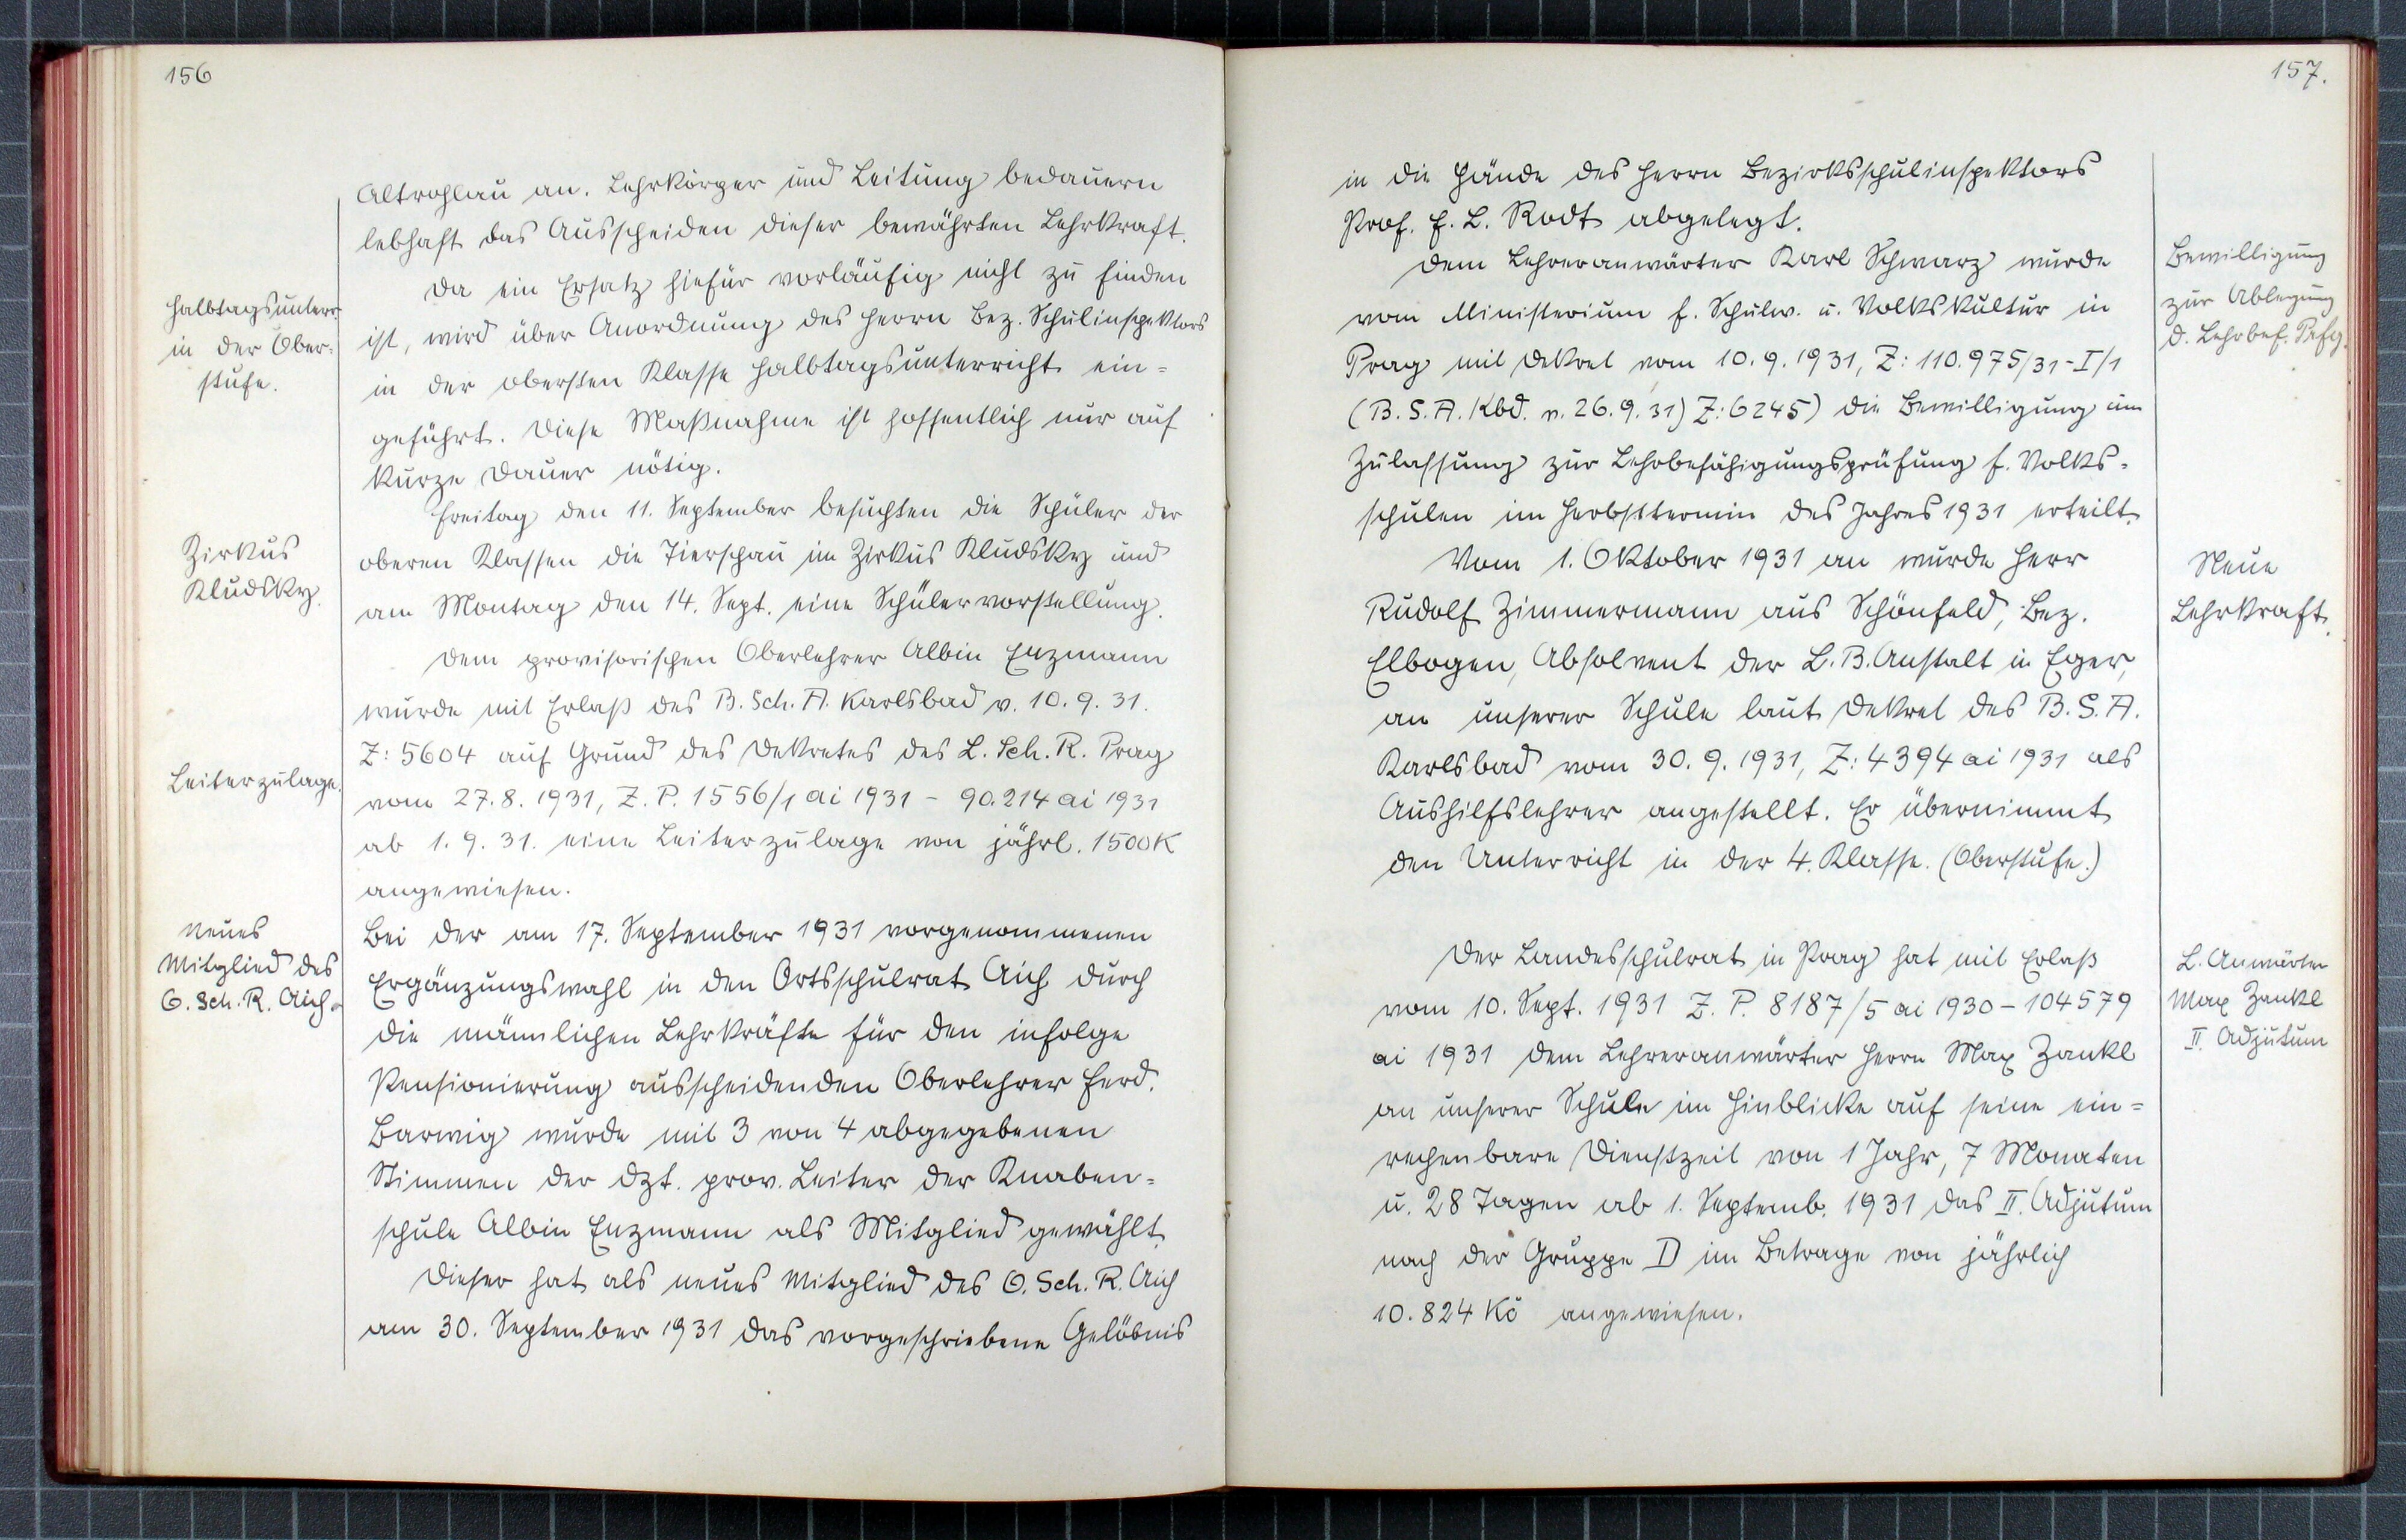 156
Altrohlau an. Lehrkörper und Leitung bedauern
lebhaft das Ausscheiden dieser bewährten Lehrkraft.
Da ein Ersatz hiefür vorläufig nicht zu finden
Halbtagsunterr.
in der Ober-
stufe.
ist, wird über Anordnung des Herrn Bez. Schulinspektors
in der obersten Klasse Halbtagsunterricht ein-
geführt. Diese Maßnahme ist hoffentlich nur auf
kurze Dauer nötig.
Freitag den 11. September besuchten die Schüler der
Zirkus
Kludsky.
oberen Klassen die Tierschau im Zirkus Kludsky und
am Montag den 14. Sept. eine Schülervorstellung.
Dem provisorischen Oberlehrer Albin Enzmann
wurde mit Erlaß des B. Sch. A. Karlsbad v. 10. 9. 31.
Z: 5604 auf Grund des Dekretes des L. Sch. R. Prag
Leiterzulage.
vom 27. 8. 1931, Z. P. 1556/1 ai 1931 - 90.214 ai 1931
ab 1. 9. 31. eine Leiterzulage von jährl. 1500 K
angewiesen.
Neues
Mitglied des
O. Sch. R. Aich.
Bei der am 17. September 1931 vorgenommenen
Ergänzungswahl in den Ortsschulrat Aich durch
die männlichen Lehrkräfte für den infolge
Pensionierung ausscheidenden Oberlehrer Ferd.
Barwig wurde mit 3 von 4 abgegebenen
Stimmen der dzt. prov. Leiter der Knaben-
schule Albin Enzmann als Mitglied gewählt.
Dieser hat als neues Mitglied des O. Sch. R. Aich
am 30. September 1931 das vorgeschriebene Gelöbnis
157.
in die Hände des Herrn Bezirksschulinspektors
Prof. E. L. Rodt abgelegt.
Bewilligung
zur Ablegung
d. Lehrbef. Prfg.
Dem Lehreranwärter Karl Schwarz wurde
vom Ministerium f. Schulw. u. Volkskultur in
Prag mit Dekret vom 10. 9. 1931, Z: 110.975/31-I/1
(B. S. A. Kbd. v. 26. 9. 31) Z: 6245) die Bewilligung um
Zulassung zur Lehrbefähigungsprüfung f. Volks-
schulen im Herbsttermin des Jahres 1931 erteilt.
Neue
Lehrkraft.
Vom 1. Oktober 1931 an wurde Herr
Rudolf Zimmermann aus Schönfeld, Bez.
Elbogen, Absolvent der L. B. Anstalt in Eger,
an unserer Schule laut Dekret des B. S. A.
Karlsbad vom 30. 9. 1931, Z: 4394 ai 1931 als
Aushilfslehrer angestellt. Er übernimmt
den Unterricht in der 4. Klasse. (Oberstufe.)
L. Anwärter
Max Zankl
II. Adjutum
Der Landesschulrat in Prag hat mit Erlaß
vom 10. Sept. 1931 Z. P. 8187/5 ai 1930 - 104579
ai 1931 dem Lehreranwärter Herrn Max Zankl
an unserer Schule im Hinblicke auf seine ein-
rechenbare Dienstzeit von 1 Jahr, 7 Monaten
u. 28 Tagen ab 1. Septemb. 1931 das II. Adjutum
nach der Gruppe D im Betrage von jährlich
10.824 Kč angewiesen.